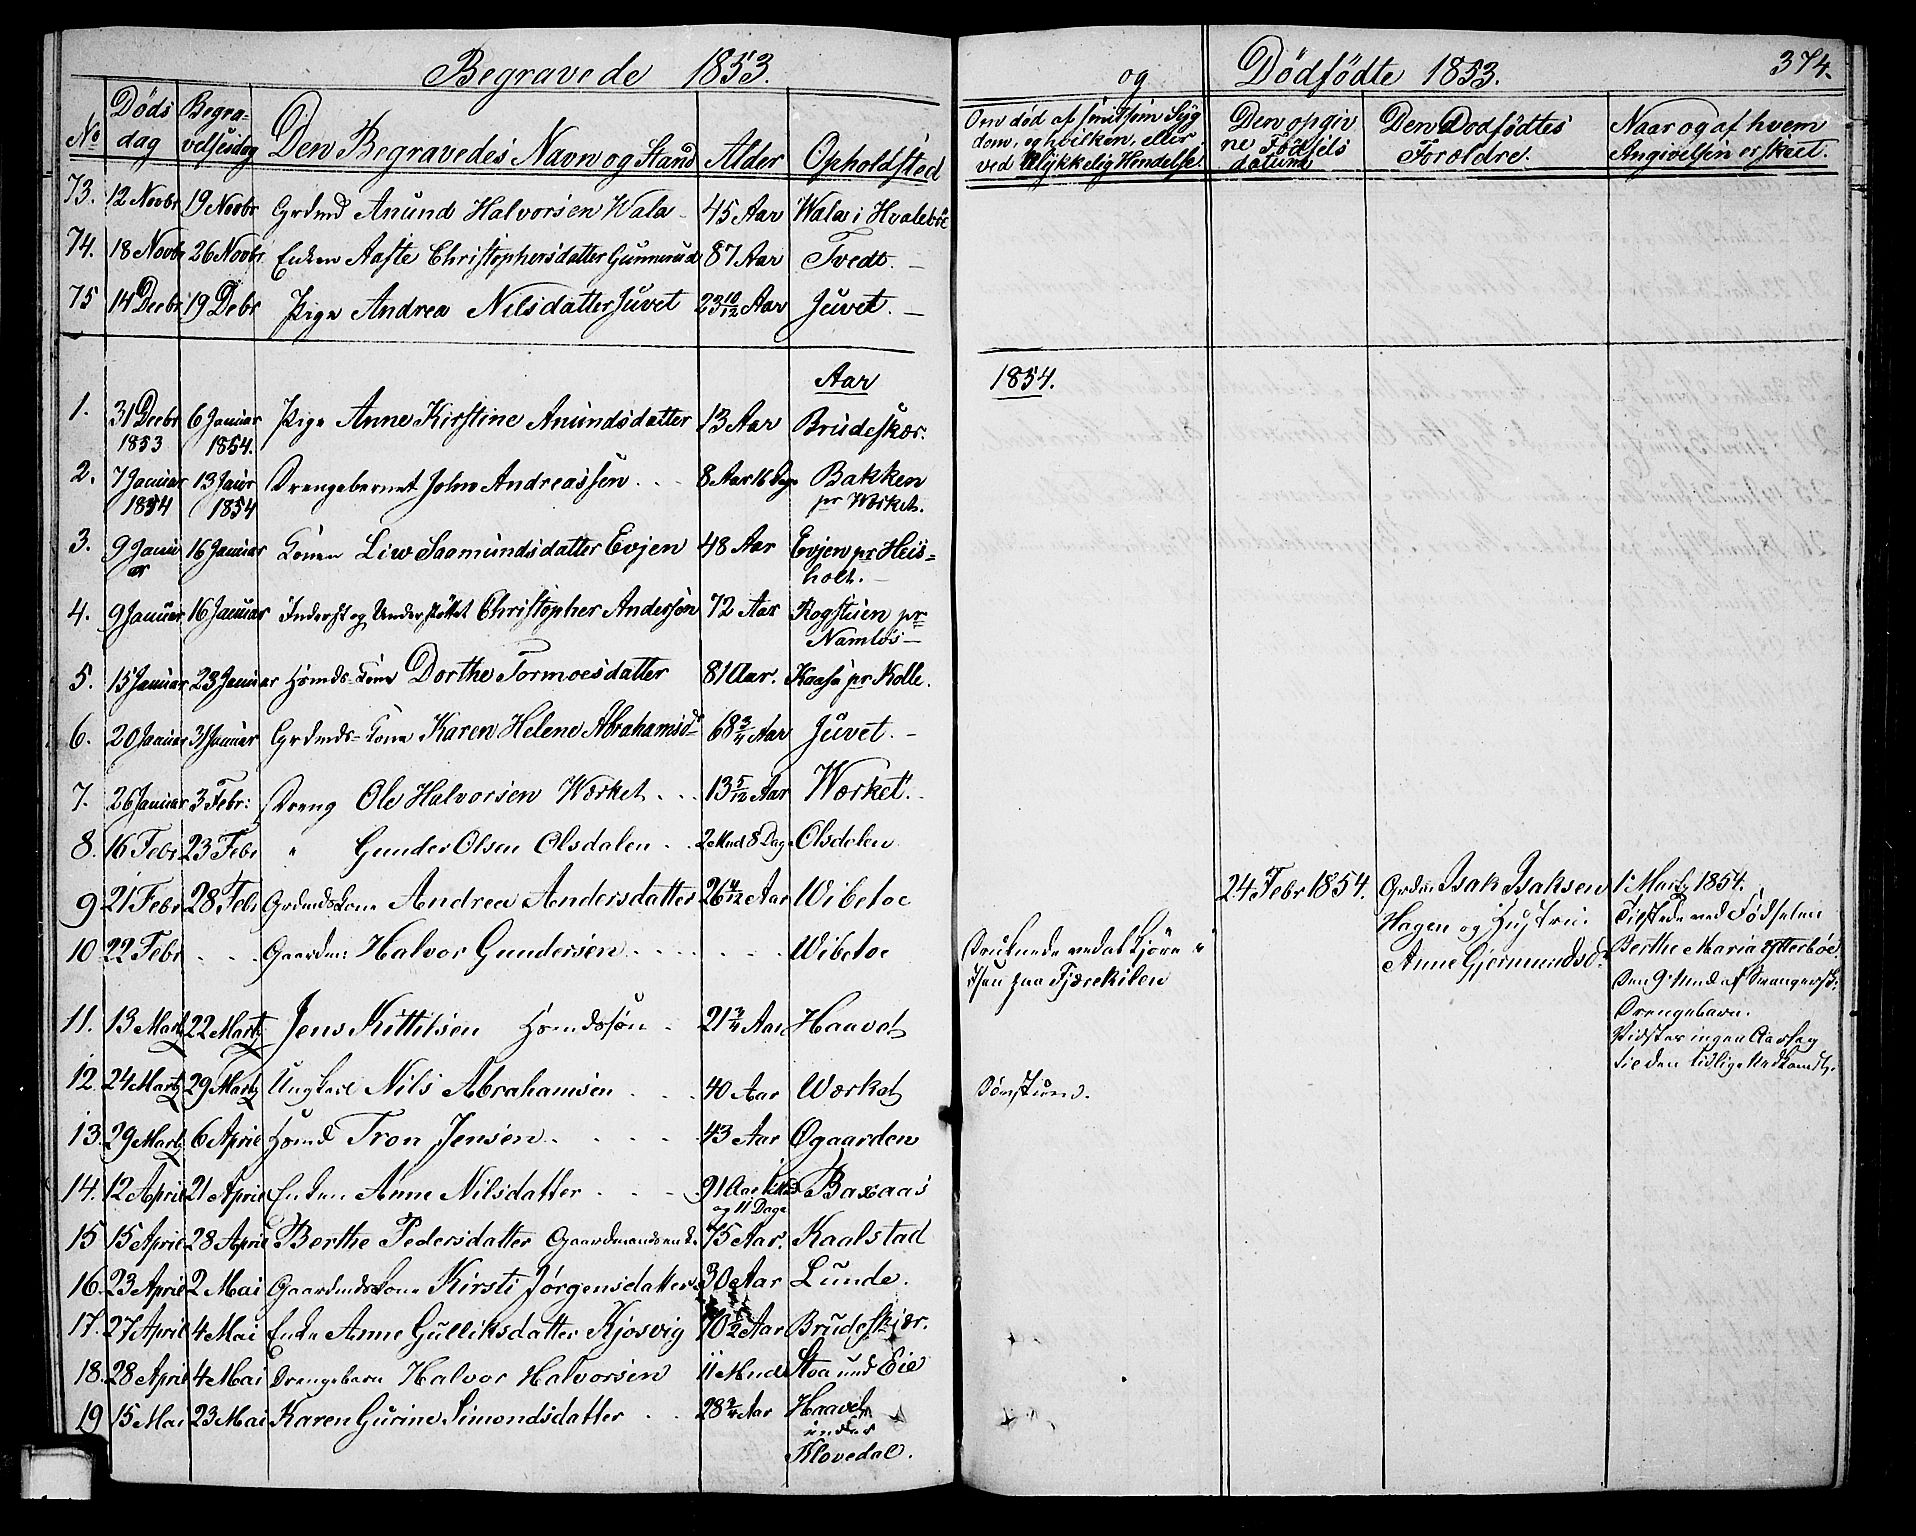 Begravede 1853.
No Døds dag Begravelsesdag Den Begravedes Navn og Stand Alder Opholdsted
73. 12 Novbr 19 Novbr Grdmd Anund Halvorsen Wala 45 Aar Wala i Hvalebøe
74. 18 Novbr 26 Novbr Enken Aaste Christophersdatter Gunnerud 87 Aar Tvedt.
75 14 Decbr 19 Debr Pige Andrea Nilsdatter Juvet 23 10/12 Aar Juvet.
Aar
1. 31 Decbr 6 Januar Pige Anne Kirstine Anundsdatter 13 Aar Brudeskær.
1853 1854.
2. 7 Januar 13 Januar Drengebarnet John Andreassen 8 Aar 16 Dage Bakken
1854 1854 pr Værket.
3. 9 Janu 16 Januar Konen Liw Saamundsdatter Evjen 48 Aar Evjen pr Heis=
ar holt.
4. 9 Januar 16 Januar Inderst og Understøttet Christopher Andersøn 72 Aar Rogstuen pr
Namløs
5. 15 Januar 23 Januar Hsmds Kone Dorthe Tormoesdatter 81 Aar. Kaasa pr Kolle.
6. 20 Januar 31 Januar Grdmds-Kone Karen Helene Abrahamsd 68 3/4 Aar Juvet.
7. 26 Januar 3 Febr: Dreng Ole Halvorsen Wærket 13 5/12 Aar Wærket.
8. 16 Febr 23 Febr " Gunder Olsen Olsdalen 2 Mnd 8 Dage Olsdalen
9 21 Febr 28 Febr Grdmds Kone Andrea Andersdatter 26 4/12 Aar Wibetoe
10 22 Febr Gaardm: Halvor Gundersen Wibetoe
11. 13 Marts 22 Marts Jens Kittilsen Hsmdssøn 21 3/4 Aar Haavet
12. 24 Marts 29 Marts Ungkarl Nils Abrahamsen 40 Aar Værket
13. 29 Marts 6 April Hsmd Tron Jensen 43 Aar Øgaarden
14. 12 April 21 April Enken Anne Nilsdatter 91 Aar Baxaas
og 11 Dage
15 15 April 28 April Berthe Pedersdatter Gaardmandsenke 75 Aar. Kaalstad
16. 23 April 2 Mai Gaardmds Kone Kirsti Jørgensdatter 30 Aar Lunde.
17. 27 April 4 Mai Enke Anne Gulliksdatter Kjosvig 70 Aar Brudeskjær.
18. 28 April 4 Mai Drengebarn Halvor Halvorsen 11 Mnd Stoa und Eie
19 15 Mai 23 Mai Karen Gurine Simondsdatter 28 3/4 Aar Haavet
under
Klovedal.
og Dødfødte 1853. 374.
Om død af smitsom Syg
dom, og hvilken, eller
ved Ulykkelig Hendelse.
Den opgiv
ne Fødsels
datum
Den Dodfødtes
Forældre.
Naar og af hvem
Angivelsen er skeet.
1854.
24. Febr 1854. Grdm Isak Isaksen 1 Marts 1854.
Hagen og Hustru Tilstede ved Fødselen
Druknede ved at Kjøre i Anne Gjermundsd. Berthe Maria Ytterbøe
Isen paa Fjærekilen Den 9' Mnd af Svangersk.
Drengebarn.
Vidster ingen Aarsag
til den tidlige Nedkomst.
Dønstrund.